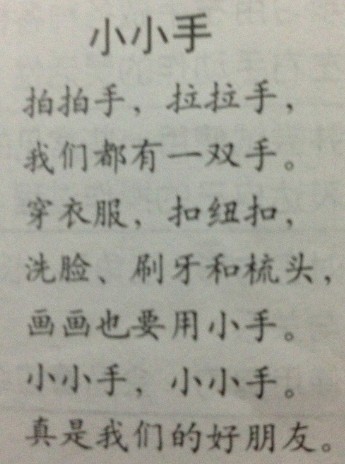 小小手
拍拍手，拉拉手，
我们都有一双手。
穿衣服，扣纽扣，
洗脸、刷牙和梳头，
画画也要用小手。
小小手，小小手。
真是我们的好朋友。